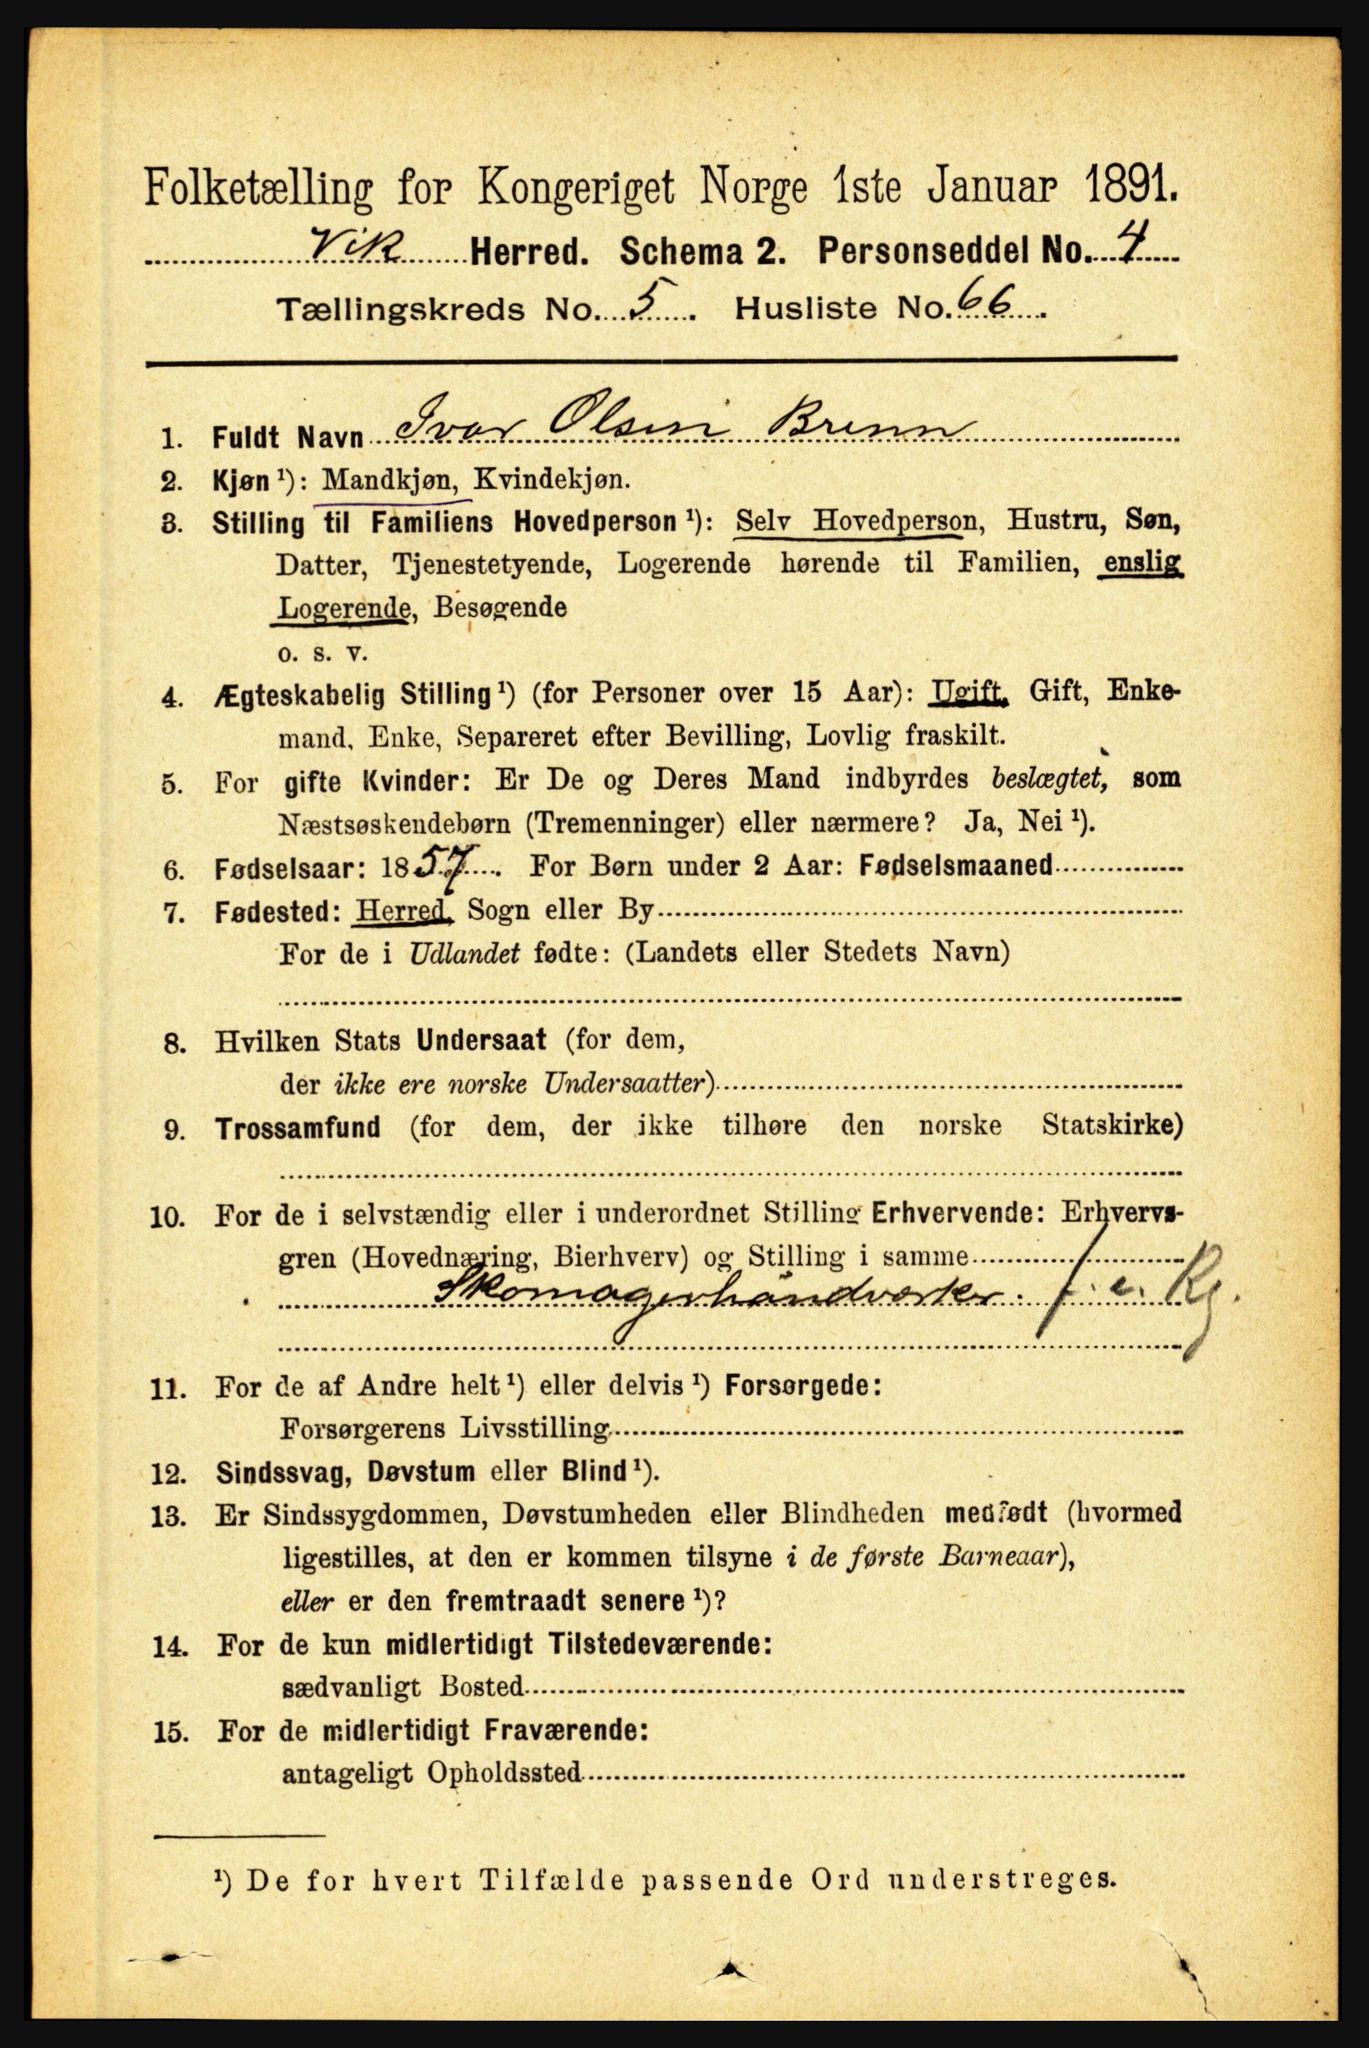 Folketælling for Kongeriget Norge 1ste Januar 1891.
Vik Herred. Schema 2. Personseddel No. 4
Tællingskreds No. 5. Husliste No. 66.
1. Fuldt Navn Ivar Olsen Brenn
2. Kjøn ¹): Mandkjøn, Kvindekjøn.
3. Stilling til Familiens Hovedperson ¹): Selv Hovedperson, Hustru, Søn,
Datter, Tjenestetyende, Logerende hørende til Familien, enslig
Logerende, Besøgende
o. s. v.
4. Ægteskabelig Stilling ¹) (for Personer over 15 Aar): Ugift, Gift, Enke-
mand, Enke, Separeret efter Bevilling, Lovlig fraskilt.
5. For gifte Kvinder: Er De og Deres Mand indbyrdes beslægtet, som
Næstsøskendebørn (Tremenninger) eller nærmere? Ja, Nei ¹).
6. Fødselsaar: 1857. For Børn under 2 Aar: Fødselsmaaned
7. Fødested: Herred, Sogn eller By
For de i Udlandet fødte: (Landets eller Stedets Navn)
8. Hvilken Stats Undersaat (for dem,
der ikke ere norske Undersaatter)
9. Trossamfund (for dem, der ikke tilhøre den norske Statskirke)
10. For de i selvstændig eller i underordnet Stilling Erhvervende: Erhvervs-
gren (Hovednæring, Bierhverv) og Stilling i samme
Skomagerhåndværker. f. e. Rg.
11. For de af Andre helt ¹) eller delvis ¹) Forsørgede:
Forsørgerens Livsstilling
12. Sindssvag, Døvstum eller Blind ¹).
13. Er Sindssygdommen, Døvstumheden eller Blindheden medfødt (hvormed
ligestilles, at den er kommen tilsyne i de første Barneaar),
eller er den fremtraadt senere ¹)?
14. For de kun midlertidigt Tilstedeværende:
sædvanligt Bosted
15. For de midlertidigt Fraværende:
antageligt Opholdssted
¹) De for hvert Tilfælde passende Ord understreges.